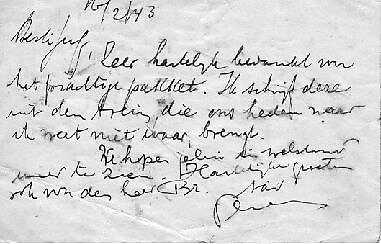 16/2/43
Beste Jufr, Zeer hartelijk bedankt voor
het prachtige pakket. Ik schrijf deze
uit den trein, die ons heden naar
ik weet niet waar, brengt.
Wij hopen in welstand
weer te zien. Hartelijke groeten
ook van den heer Br.